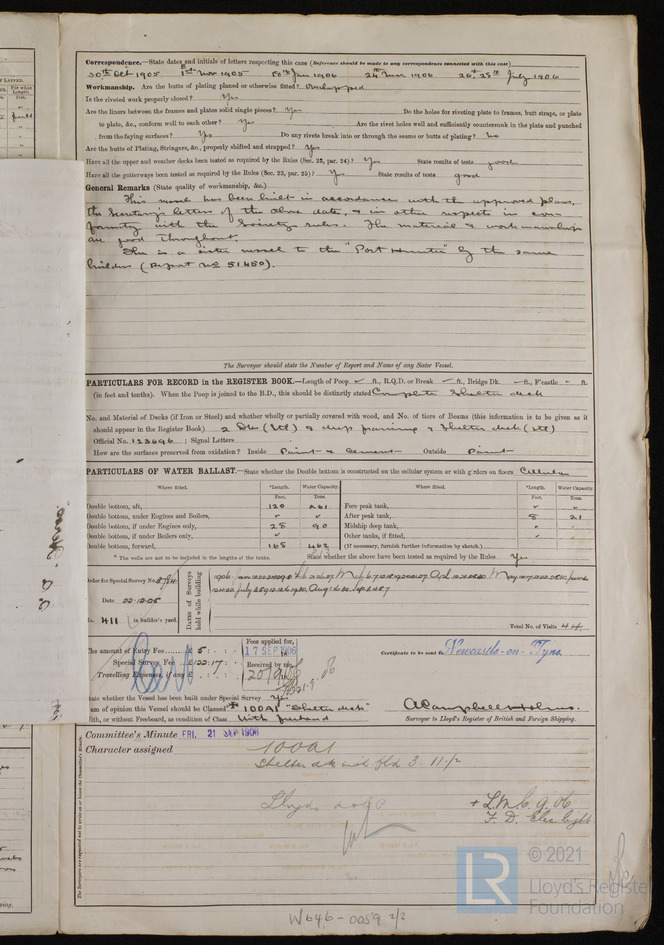 Correspondence.—State dates and initials of letters respecting this case (Reference should be made to any correspondence connected with this case)
30th Oct 1905 1st Nov 1905 Jan 1906 24th Mar 1906 26th 28th July 1906
Workmanship. Are the butts of plating planed or otherwise fitted? Overlapped
Is the riveted work properly closed? Yes
Are the liners between the frames and plates solid single pieces? Yes Do the holes for riveting plate to frames, butt straps, or plate
to plate, &c., conform well to each other? Yes Are the rivet holes well and sufficiently countersunk in the plate and punched
from the faying surfaces? Yes Do any rivets break into or through the seams or butts of plating? No
Are the butts of Plating, Stringers, &c., properly shifted and strapped? Yes
Have all the upper and weather decks been tested as required by the Rules (Sec. 23, par. 24)? Yes State results of tests good
Have all the gutterways been tested as required by the Rules (Sec. 23, par. 25)? Yes State results of tests good
General Remarks (State quality of workmanship, &c.)
This vessel has been built in accordance with the approved plans,
the Secretary's letters of the above date, & in other respects in con
formity with the Society's rules. The material & workmanship
are good throughout.
She is a sister vessel to the "Port Hunter" by the same
builders (Report No 51450).
The Surveyor should state the Number of Report and Name of any Sister Vessel.
PARTICULARS FOR RECORD in the REGISTER BOOK.—Length of Poop ft., R.Q.D. or Break ft., Bridge Dk. ft., F'castle ft.
(in feet and tenths). When the Poop is joined to the B.D., this should be distinctly stated Complete Shelter deck
No. and Material of Decks (if Iron or Steel) and whether wholly or partially covered with wood, and No. of tiers of Beams (this information is to be given as it
should appear in the Register Book) 2 Dks (Stl) & deep framing & Shelter deck (stl)
Official No. 123696 ; Signal Letters
How are the surfaces preserved from oxidation? Inside Paint & Cement Outside Paint
PARTICULARS OF WATER BALLAST.—State whether the Double bottom is constructed on the cellular system or with girders on floors Cellular
Where fitted. *Length. Water Capacity. Where fitted. *Length. Water Capacity.
Feet. Tons. Feet. Tons.
Double bottom, aft, 120 261 Fore peak tank,
Double bottom, under Engines and Boilers, After peak tank, 8 21
Double bottom, if under Engines only, 28 90 Midship deep tank,
Double bottom, if under Boilers only, Other tanks, if fitted,
Double bottom, forward, 168 462 (If necessary, furnish further information by sketch.)
* The wells are not to be included in the lengths of the tanks. State whether the above have been tested as required by the Rules Yes
Order for Special Survey No.
Date 22.12.05
No. 411 in builder's yard.
Dates of Surveys held while building
1906
Total No. of Visits 44.
The amount of Entry Fee £ 5 : : Fees applied for,
17 SEP 1906
Special Survey Fee £122:17 : Received by me,
Travelling Expenses, if any £
Certificate to be sent to Newcastle-on-Tyne.
State whether the Vessel has been built under Special Survey Yes
am of opinion this Vessel should be Classed 100A1 "Shelter deck"
With, or without Freeboard, as condition of Class With freeboard
A Campbell Holms.
Surveyor to Lloyd's Register of British and Foreign Shipping.
Committee's Minute FRI. 21 SEP 1906
Character assigned 100A1
Shelter dk with fbd 3. 11 1/2
Lloyds
+ L.M.C. 9.06
F.D. Elec light
© 2021
Lloyd's Register
Foundation
W646-0059 2/2